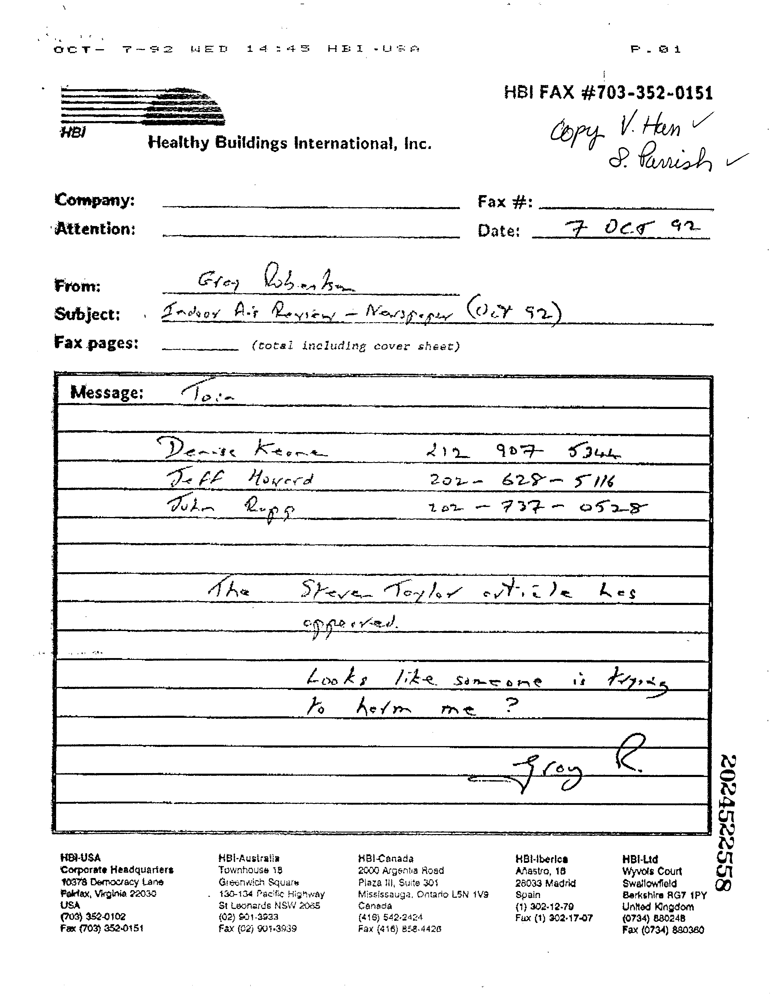 OCT- 7-92 WED 14:45 HBI-USA P.01
HBI FAX #703-352-0151
HBI
Healthy Buildings International, Inc.
Copy V. Han ✓
S. Parrish ✓
Company: Fax #:
Attention: Date: 7 OCT 92
From: Gray Robertson
Subject: Indoor Air Review - Newspaper (Oct 92)
Fax pages: (total including cover sheet)
Message: To:-
Denise Keane 212 907 5344
Jeff Howard 202-628-5116
John Rupp 202-737-0528
The Steven Taylor article has
appeared.
Looks like someone is trying
to harm me?
Gray R.
2024522558
HBI-USA
Corporate Headquarters
10378 Democracy Lane
Fairfax, Virginia 22030
USA
(703) 352-0102
Fax (703) 352-0151
HBI-Australia
Townhouse 18
Greenwich Square
130-134 Pacific Highway
St Leonards NSW 2065
(02) 901-3933
Fax (02) 901-3939
HBI-Canada
2000 Argentia Road
Plaza III, Suite 301
Mississauga, Ontario L5N 1V9
Canada
(416) 542-2424
Fax (416) 858-4426
HBI-Iberica
Añastro, 18
28033 Madrid
Spain
(1) 302-12-79
Fax (1) 302-17-07
HBI-Ltd
Wyvols Court
Swallowfield
Berkshire RG7 1PY
United Kingdom
(0734) 880248
Fax (0734) 880360